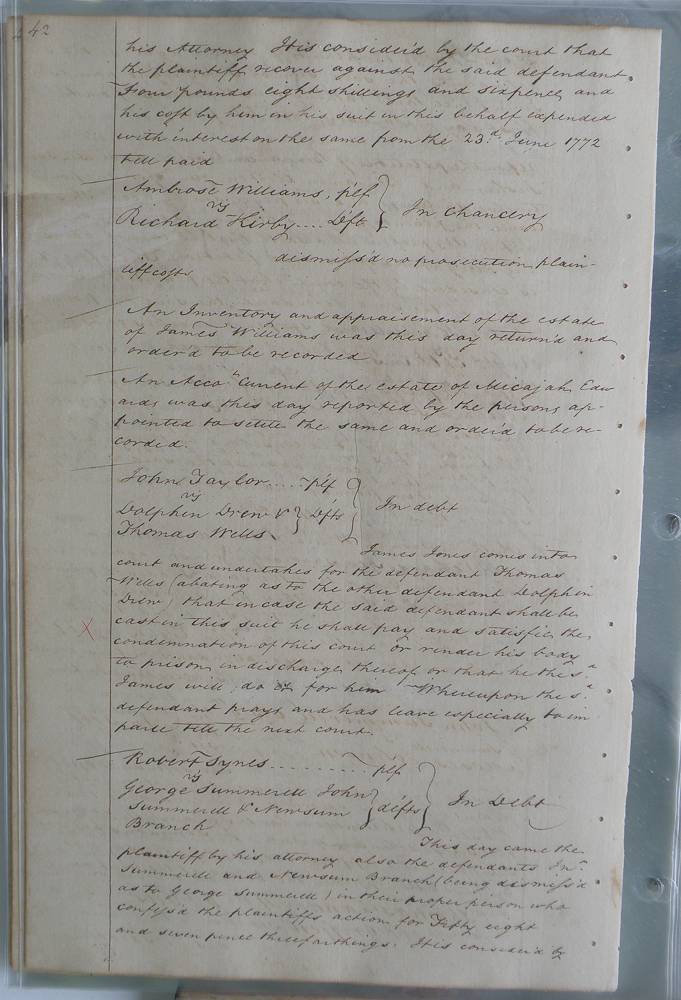 42
his Attorney It is consider'd by the court that
the plaintiff recover against the said defendant
Four pounds eight shillings and sixpence and
his cost by him in his suit in this behalf expended
with interest on the same from the 23.d June 1772
till paid
Ambrose Williams, plf
vs
Richard Kirby.... Dft
In Chancery
dismiss'd no prosecution plain-
tiff costs
An Inventory and appraisement of the estate
of James Williams was this day return'd and
order'd to be recorded
An Acco.t Current of the estate of Micajah Edw
ards, was this day reported by the persons ap-
pointed to settle the same and order'd to be re-
corded.
John Taylor.... plf
vs
Dolphin Drew &
Thomas Wells
Dfts
In debt
James Jones comes into
court and undertakes for the defendant Thomas
Wells (abating as to the other defendant Dolphin
Drew) that in case the said defendant shall be
cast in this suit he shall pay and satisfie the
condemnation of this court or render his body
to prison in discharge thereof or that he the s.d
James will do it for him Whereupon the s.d
defendant prays and has leave especially to im
parle till the next court.
Robert Synes......... plf
vs
George Summerell John
Summerell & Newsum
Branch
defts
In Debt
This day came the
plaintiff by his attorney also the defendants Jn.o
Summerell and Newsum Branch (being dismiss'd
as to George Summerell) in their proper person who
confess'd the plaintiffs action for Fifty eight
and seven pence three farthings. It is consider'd by